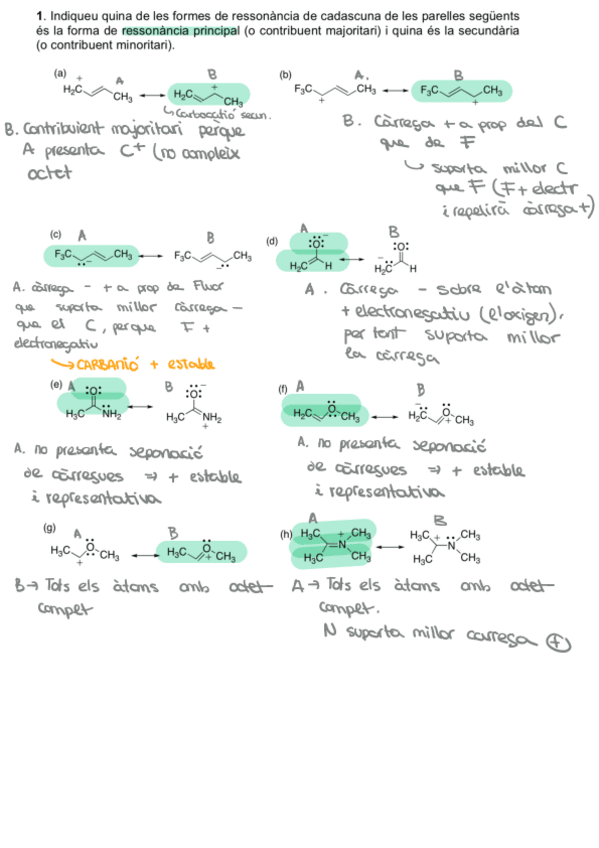 1. Indiqueu quina de les formes de ressonància de cadascuna de les parelles següents
és la forma de ressonància principal (o contribuent majoritari) i quina és la secundària
(o contribuent minoritari).
(a) + H₂C A CH₃ B H₂C + CH₃
↳ Carbocatió secun.
B. Contribuient majoritari perquè
A presenta C+ (no compleix
octet
(b) F₃C + A. CH₃ B F₃C CH₃ +
B. Càrrega + a prop del C
que de F
↳ suporta millor C
que F (F + electr
i repelirà càrrega +)
(c) A F₃C CH₃ : - B F₃C CH₃ : -
A. càrrega - + a prop de Fluor
que suporta millor càrrega -
que el C, perque F +
electronegatiu
→ CARBANIÓ + estable
(d) A :O: - H₂C H B :O: - H₂C H
A. Càrrega - sobre l'àtom
+ electronegatiu (l'oxigen),
per tant suporta millor
la càrrega
(e) A :O: H₃C NH₂ B :O: - H₃C NH₂ +
A. no presenta separació
de càrregues ⇒ + estable
i representativa
(f) A H₂C O CH₃ B - H₂C O CH₃ +
A. no presenta separació
de càrregues ⇒ + estable
i representativa
(g) A H₃C O CH₃ + B H₃C O CH₃ +
B → Tots els àtoms amb octet
compet
(h) A H₃C + CH₃ N H₃C CH₃ B H₃C + CH₃ N H₃C CH₃
A → Tots els àtoms amb octet
compet.
N suporta millor carrega ⊕